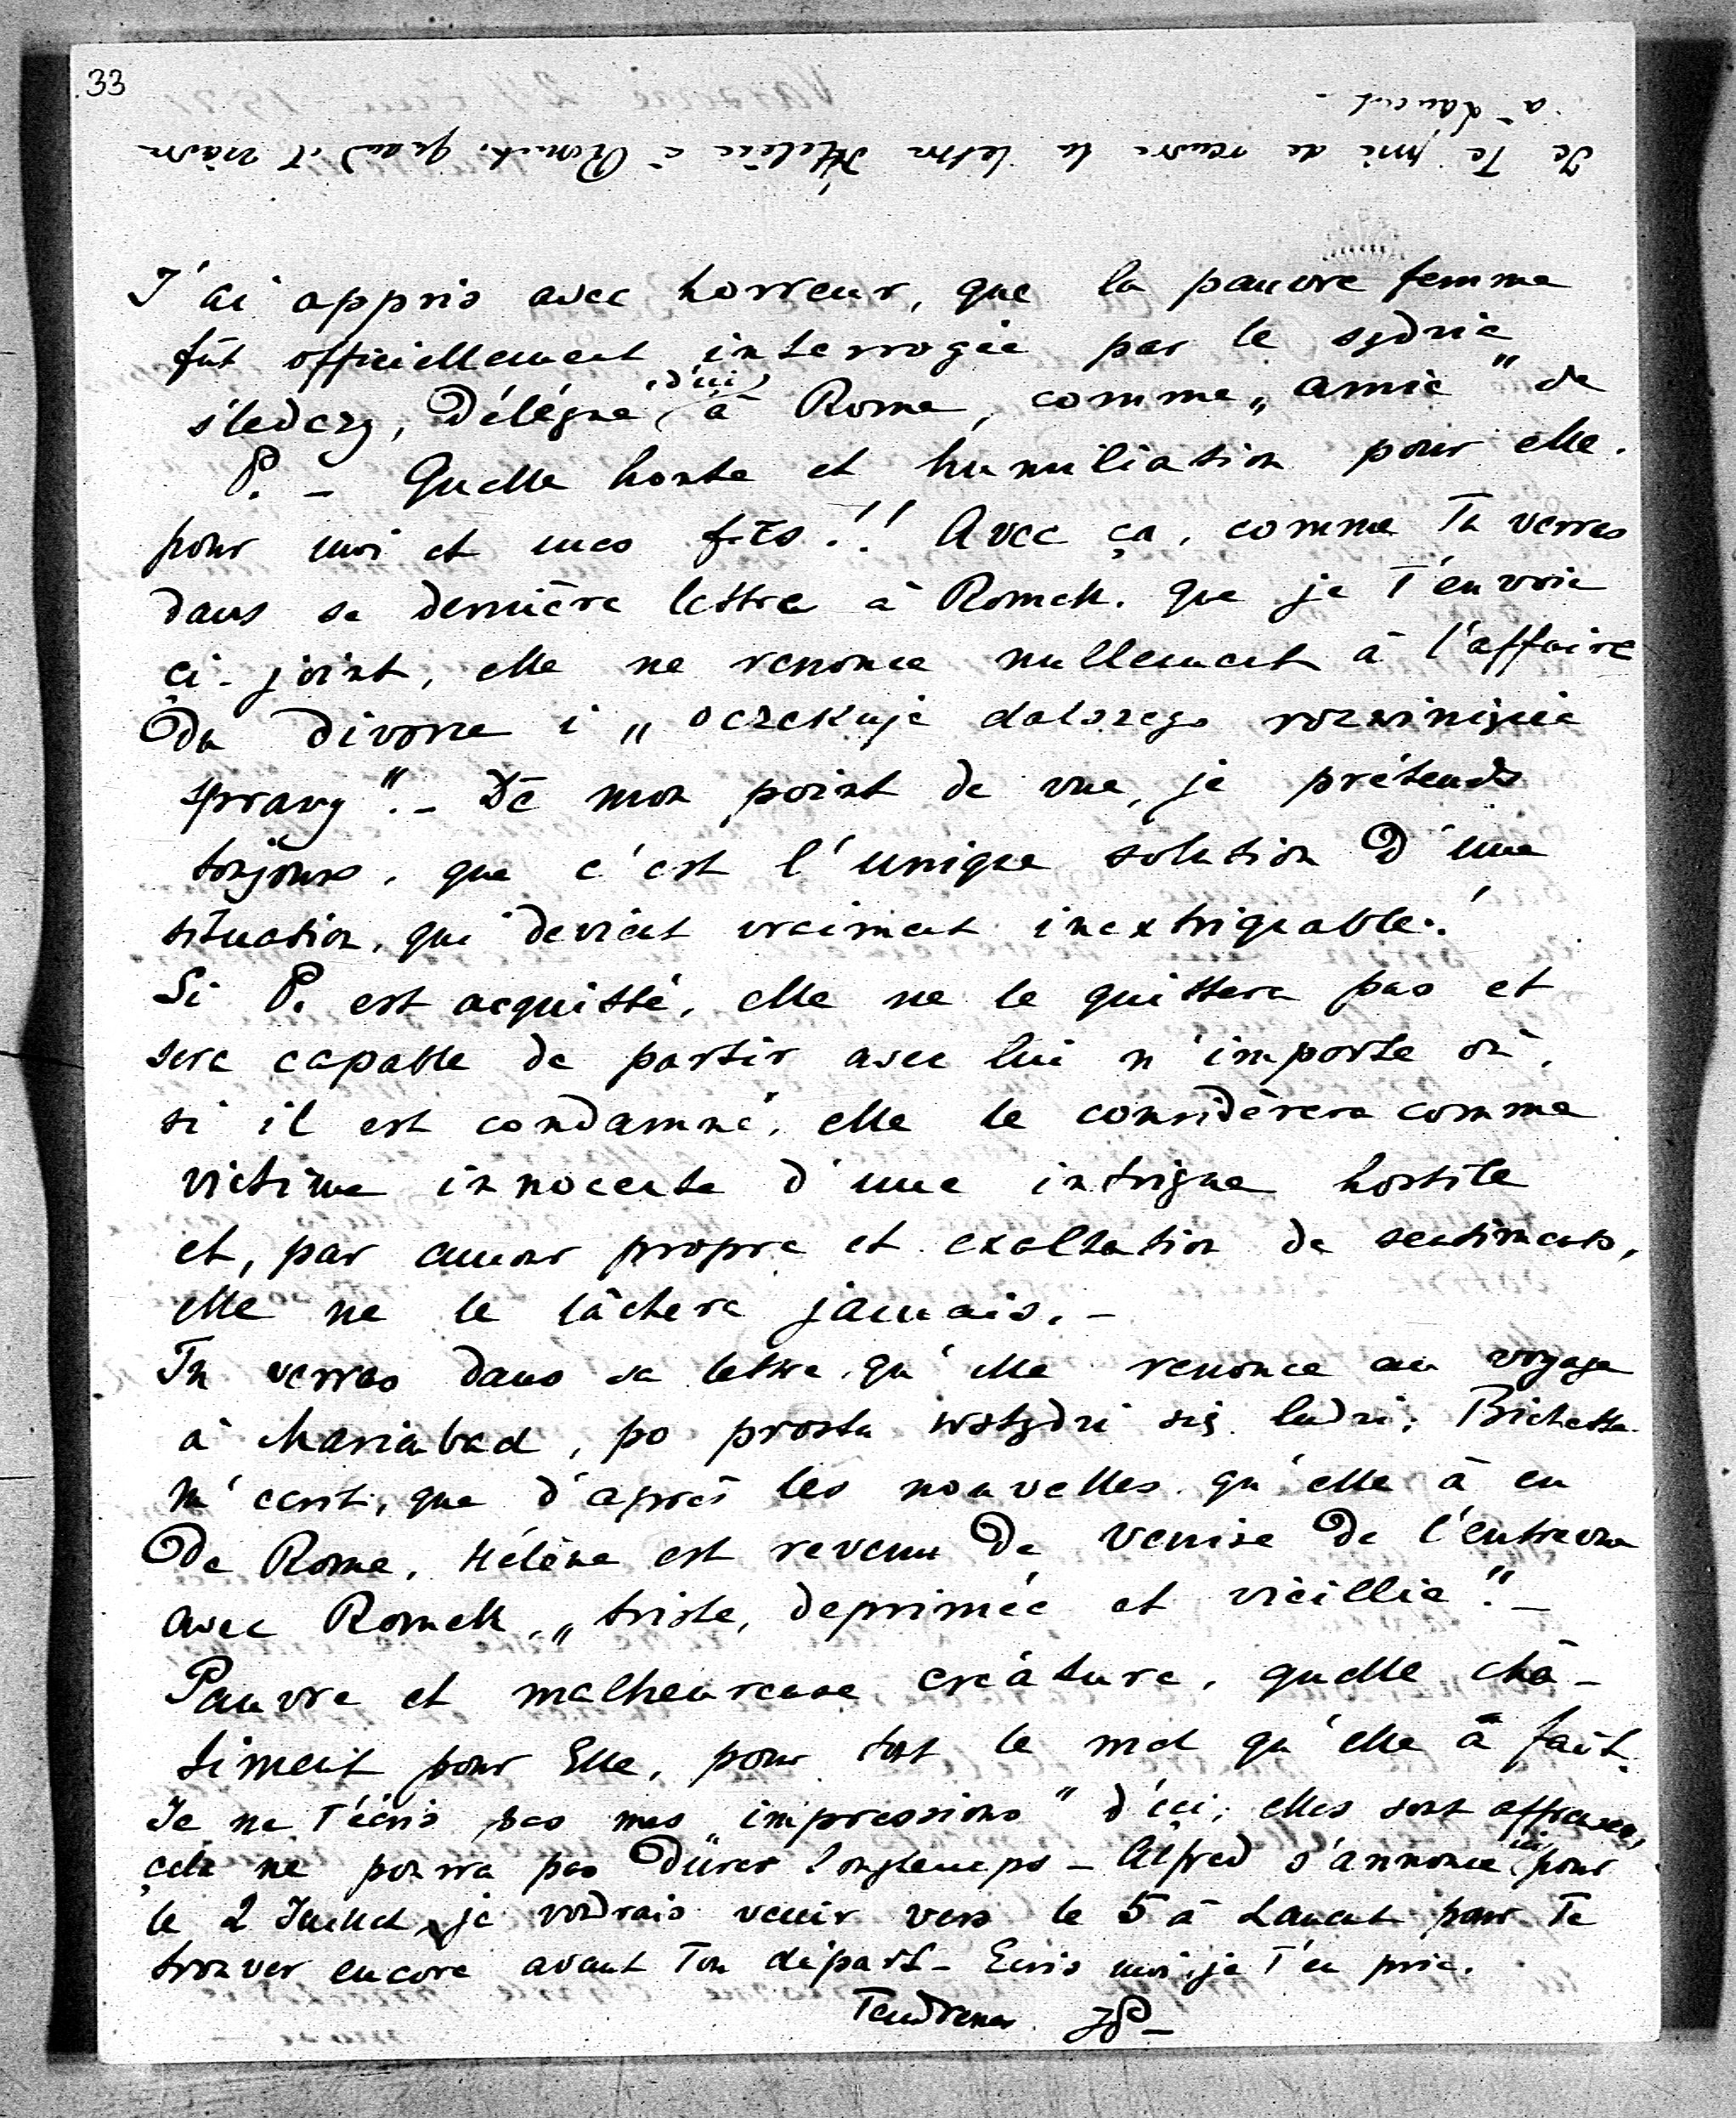 33
Je Te prie de rendre la lettre d'Hélène à Romek, quand il viendra
à Łancut –
J'ai appris avec horreur, que la pauvre femme
fût officiellement interrogée par le sędzia
śledczy, Délégué (d'ici) à Rome, comme „amie" de
P. – Quelle honte et humiliation pour elle.
pour moi et mes fils!! Avec ça, comme Tu verras
dans sa dernière lettre à Romek. que je T'envoie
çi-joint, elle ne renonce nullement à l'affaire
Du divorce i „oczekuje dalszego rozwinięcia
sprawy". – De mon point de vue, je prétends
toujours, que c'est l'unique solution D'une
situation, qui devient vraiment inextriquable!
Si P. est acquitté, elle ne le quittera pas et
sera capable de partir avec lui n'importe où,
si il est condamné, elle le considèrera comme
victime innocente d'une intrigue hostile
et, par amour propre et exaltation de sentiments,
elle ne le lâchera jamais. –
Tu verras dans sa lettre, qu'elle renonce au voyage
à Marienbad, po prostu wstydzi się ludzi; Bichette
m'ecrit, que d'après les nouvelles qu'elle à eu
De Rome, Hélène est revenu De Venise De l'entrevue
avec Romek, „triste, deprimée et vieillie". –
Pauvre et malheureuse créature, quelle châ-
timent pour Elle, pour tout le mal qu'elle à fait.
Je ne T'écris pas mes „impressions" d'ici; elles sont affreuses,
çela ne pourra pas Dürer longtemps – Alfred s'annonce (ici) pour
le 2 Juillet, je voudrais venir vers le 5 à Lancut pour Te
trouver encore avant Ton départ – Ecris moi, je T'en prie.
Tendresses JP –